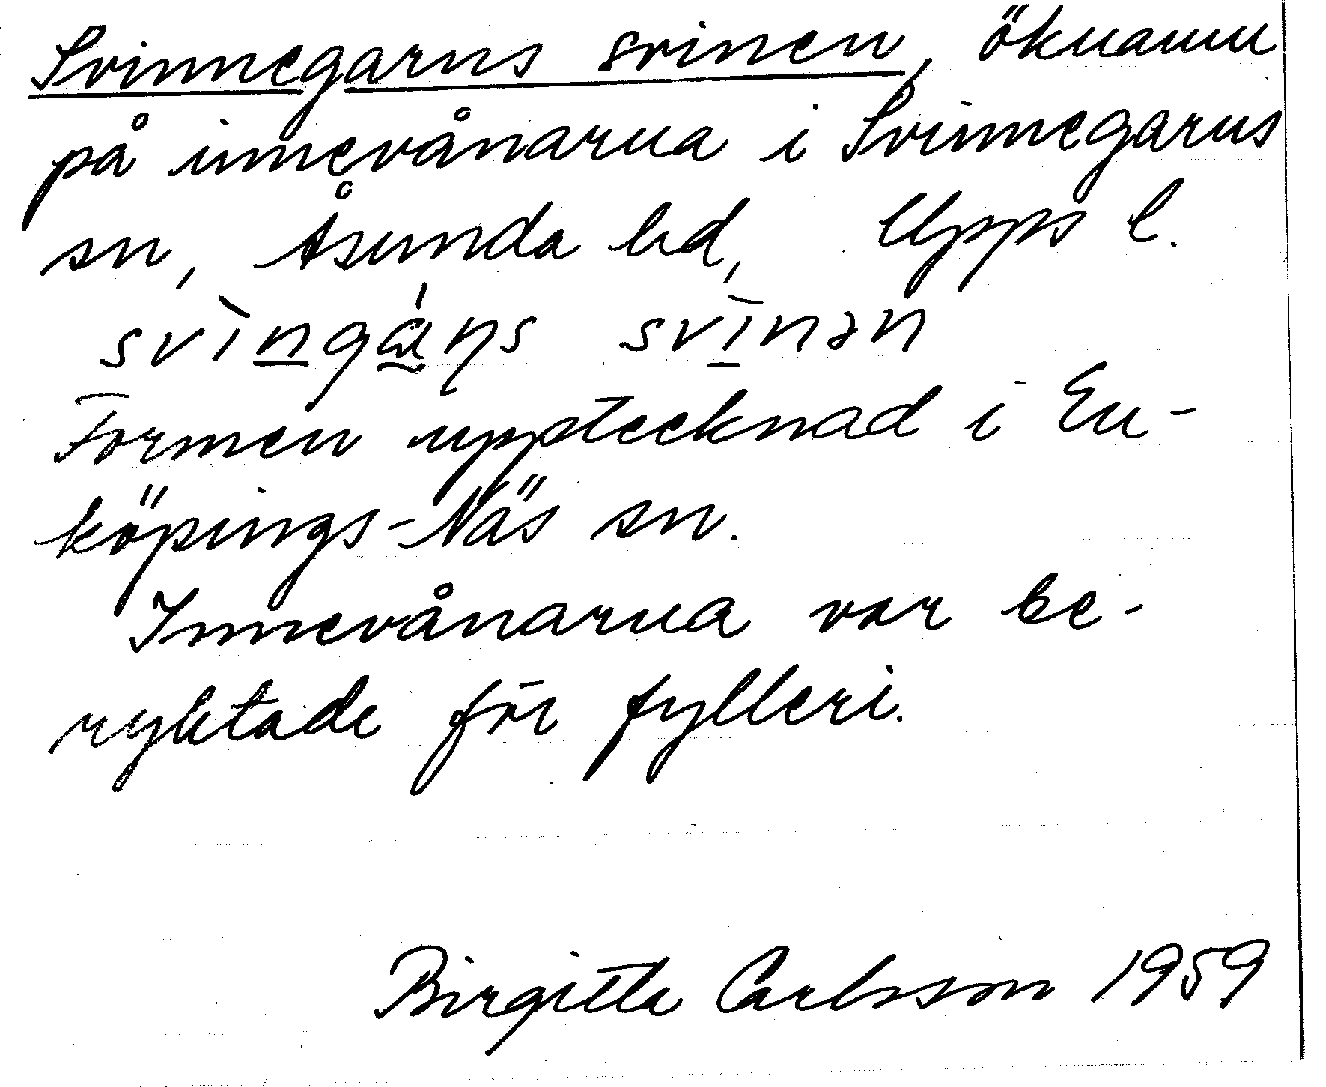 Svinnegarns svinen, öknamn
på innevånarna i Svinnegarns
sn, Åsunda hd, Upps l.
svìngá̱ŋs svìnən
Formen upptecknad i En-
köpings-Näs sn.
Innevånarna var be-
ryktade för fylleri.
Birgitta Carlsson 1959